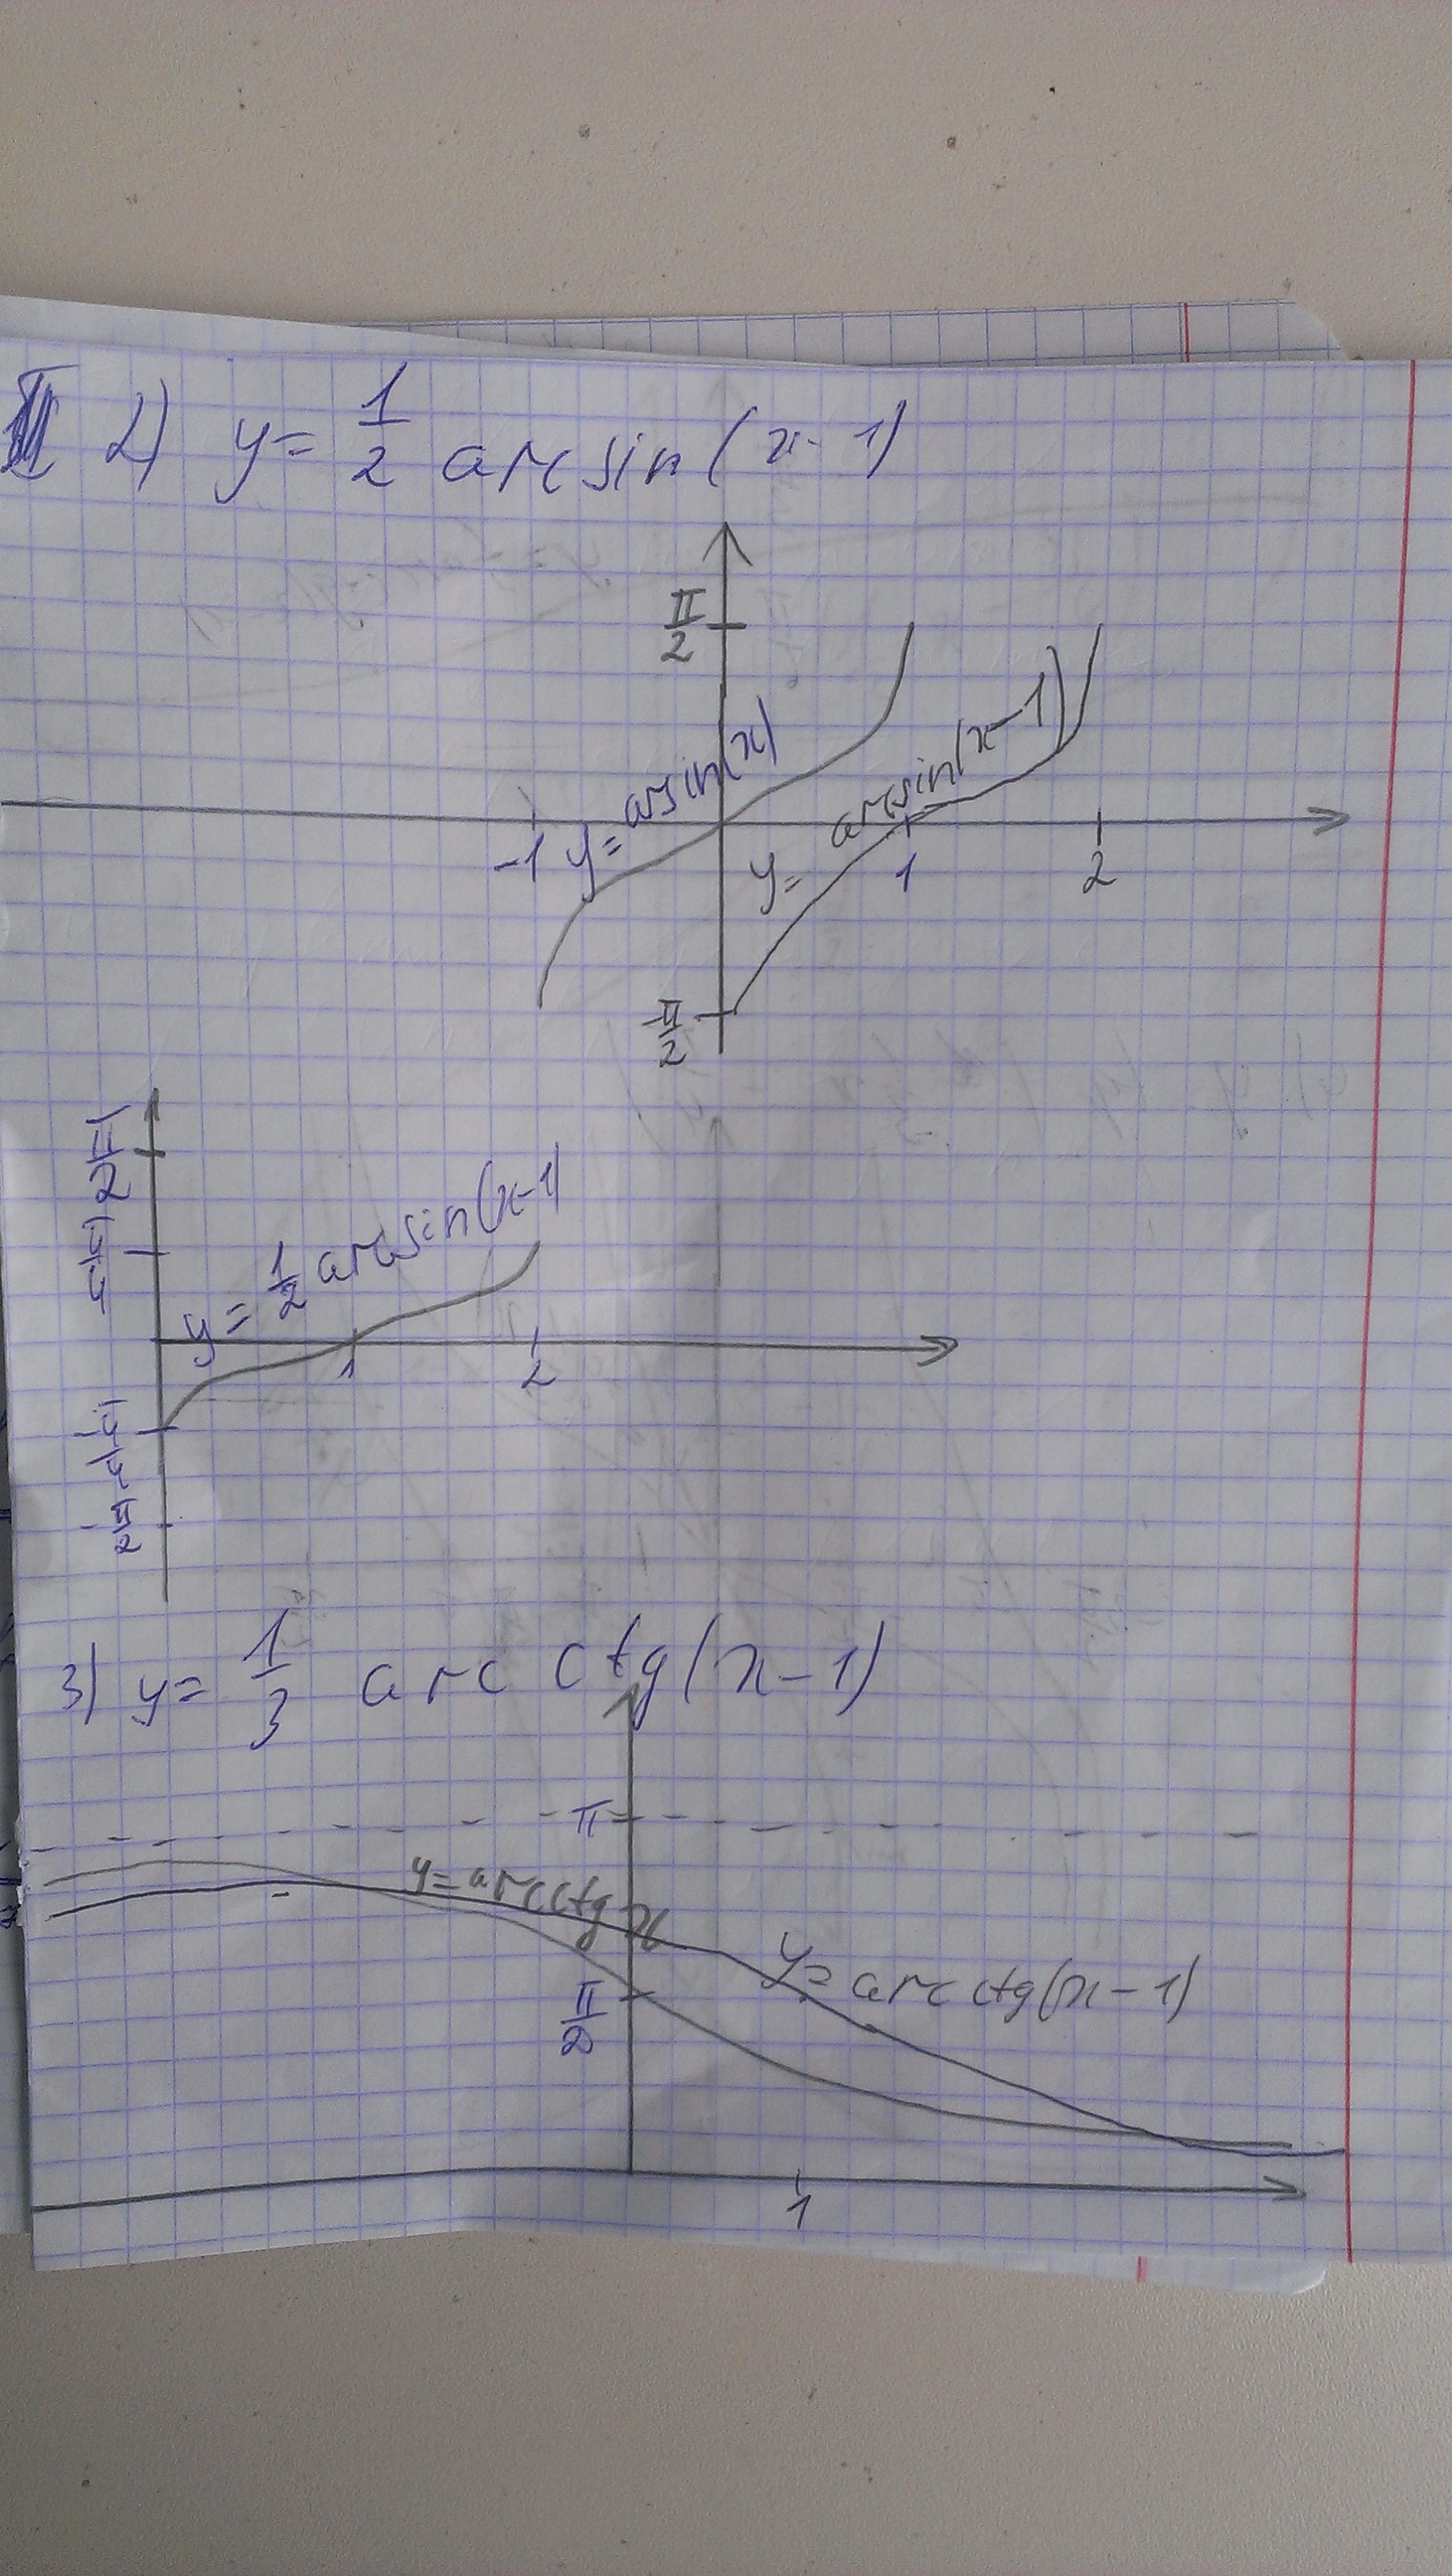 2) y = 1/2 arcsin(x-1)
π/2
y = arsin(x)
y = arcsin(x-1)
-1
1
2
-π/2
π/2
π/4
y = 1/2 arcsin(x-1)
1
2
-π/4
-π/2
3) y = 1/3 arc ctg(x-1)
π
y = arcctg x
y = arcctg(x-1)
π/2
1